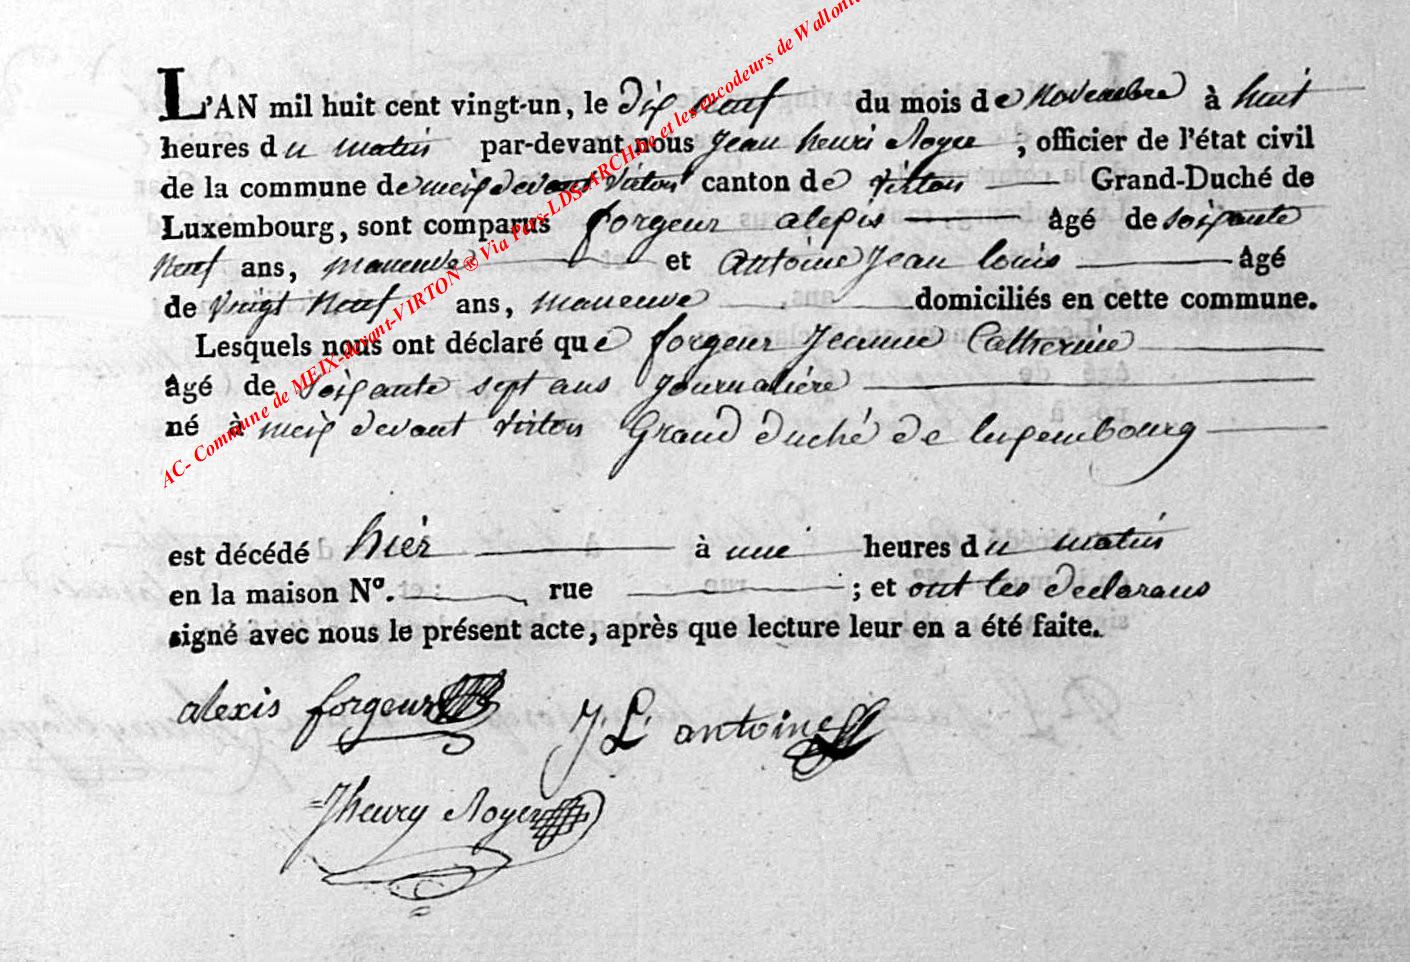 L'AN mil huit cent vingt-un, le dix neuf du mois de novembre à huit
heures du matin par-devant nous jean henri Noyer ; officier de l'état civil
de la commune de meix devant virton canton de virton Grand-Duché de
Luxembourg, sont comparus forgeur alexis âgé de soixante
neuf ans, maneuve et antoine jean louis âgé
de vingt neuf ans, maneuve domiciliés en cette commune.
Lesquels nous ont déclaré que forgeur jeanne Catherine
âgé de soixante sept ans journalière
né à meix devant virton Grand duché de luxembourg
est décédé hier à une heures du matin
en la maison N°. rue ; et ont les declarans
signé avec nous le présent acte, après que lecture leur en a été faite.
alexis forgeur J L antoine
Jhenry Noyer
AC- Commune de MEIX-devant-VIRTON ® Via Pers-LDS-ARCHive et les encodeurs de Wallonie